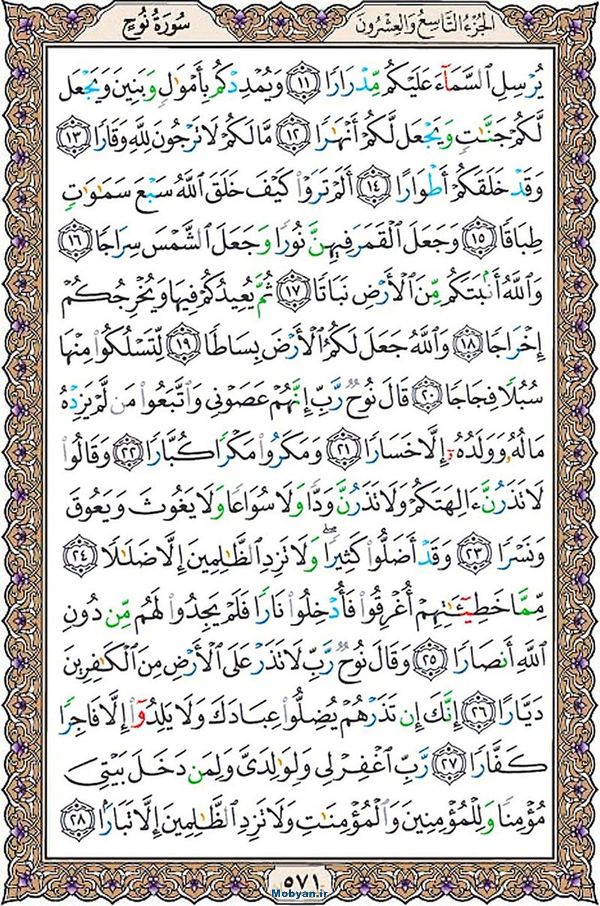 الجزء التاسع والعشرون
سورة نوح
يُرْسِلِ السَّمَآءَ عَلَيْكُم مِّدْرَارًا ١١ وَيُمْدِدْكُم بِأَمْوَٰلٍ وَبَنِينَ وَيَجْعَل
لَّكُمْ جَنَّـٰتٍ وَيَجْعَل لَّكُمْ أَنْهَـٰرًا ١٢ مَّا لَكُمْ لَا تَرْجُونَ لِلَّهِ وَقَارًا ١٣
وَقَدْ خَلَقَكُمْ أَطْوَارًا ١٤ أَلَمْ تَرَوْا۟ كَيْفَ خَلَقَ ٱللَّهُ سَبْعَ سَمَـٰوَٰتٍ
طِبَاقًا ١٥ وَجَعَلَ ٱلْقَمَرَ فِيهِنَّ نُورًا وَجَعَلَ ٱلشَّمْسَ سِرَاجًا ١٦
وَٱللَّهُ أَنۢبَتَكُم مِّنَ ٱلْأَرْضِ نَبَاتًا ١٧ ثُمَّ يُعِيدُكُمْ فِيهَا وَيُخْرِجُكُمْ
إِخْرَاجًا ١٨ وَٱللَّهُ جَعَلَ لَكُمُ ٱلْأَرْضَ بِسَاطًا ١٩ لِّتَسْلُكُوا۟ مِنْهَا
سُبُلًا فِجَاجًا ٢٠ قَالَ نُوحٌ رَّبِّ إِنَّهُمْ عَصَوْنِى وَٱتَّبَعُوا۟ مَن لَّمْ يَزِدْهُ
مَالُهُۥ وَوَلَدُهُۥٓ إِلَّا خَسَارًا ٢١ وَمَكَرُوا۟ مَكْرًا كُبَّارًا ٢٢ وَقَالُوا۟
لَا تَذَرُنَّ ءَالِهَتَكُمْ وَلَا تَذَرُنَّ وَدًّا وَلَا سُوَاعًا وَلَا يَغُوثَ وَيَعُوقَ
وَنَسْرًا ٢٣ وَقَدْ أَضَلُّوا۟ كَثِيرًا ۖ وَلَا تَزِدِ ٱلظَّـٰلِمِينَ إِلَّا ضَلَـٰلًا ٢٤
مِّمَّا خَطِيٓـَٔـٰتِهِمْ أُغْرِقُوا۟ فَأُدْخِلُوا۟ نَارًا فَلَمْ يَجِدُوا۟ لَهُم مِّن دُونِ
ٱللَّهِ أَنصَارًا ٢٥ وَقَالَ نُوحٌ رَّبِّ لَا تَذَرْ عَلَى ٱلْأَرْضِ مِنَ ٱلْكَـٰفِرِينَ
دَيَّارًا ٢٦ إِنَّكَ إِن تَذَرْهُمْ يُضِلُّوا۟ عِبَادَكَ وَلَا يَلِدُوٓا۟ إِلَّا فَاجِرًا
كَفَّارًا ٢٧ رَّبِّ ٱغْفِرْ لِى وَلِوَٰلِدَىَّ وَلِمَن دَخَلَ بَيْتِىَ
مُؤْمِنًا وَلِلْمُؤْمِنِينَ وَٱلْمُؤْمِنَـٰتِ وَلَا تَزِدِ ٱلظَّـٰلِمِينَ إِلَّا تَبَارًۢا ٢٨
٥٧١
Mobyan.ir